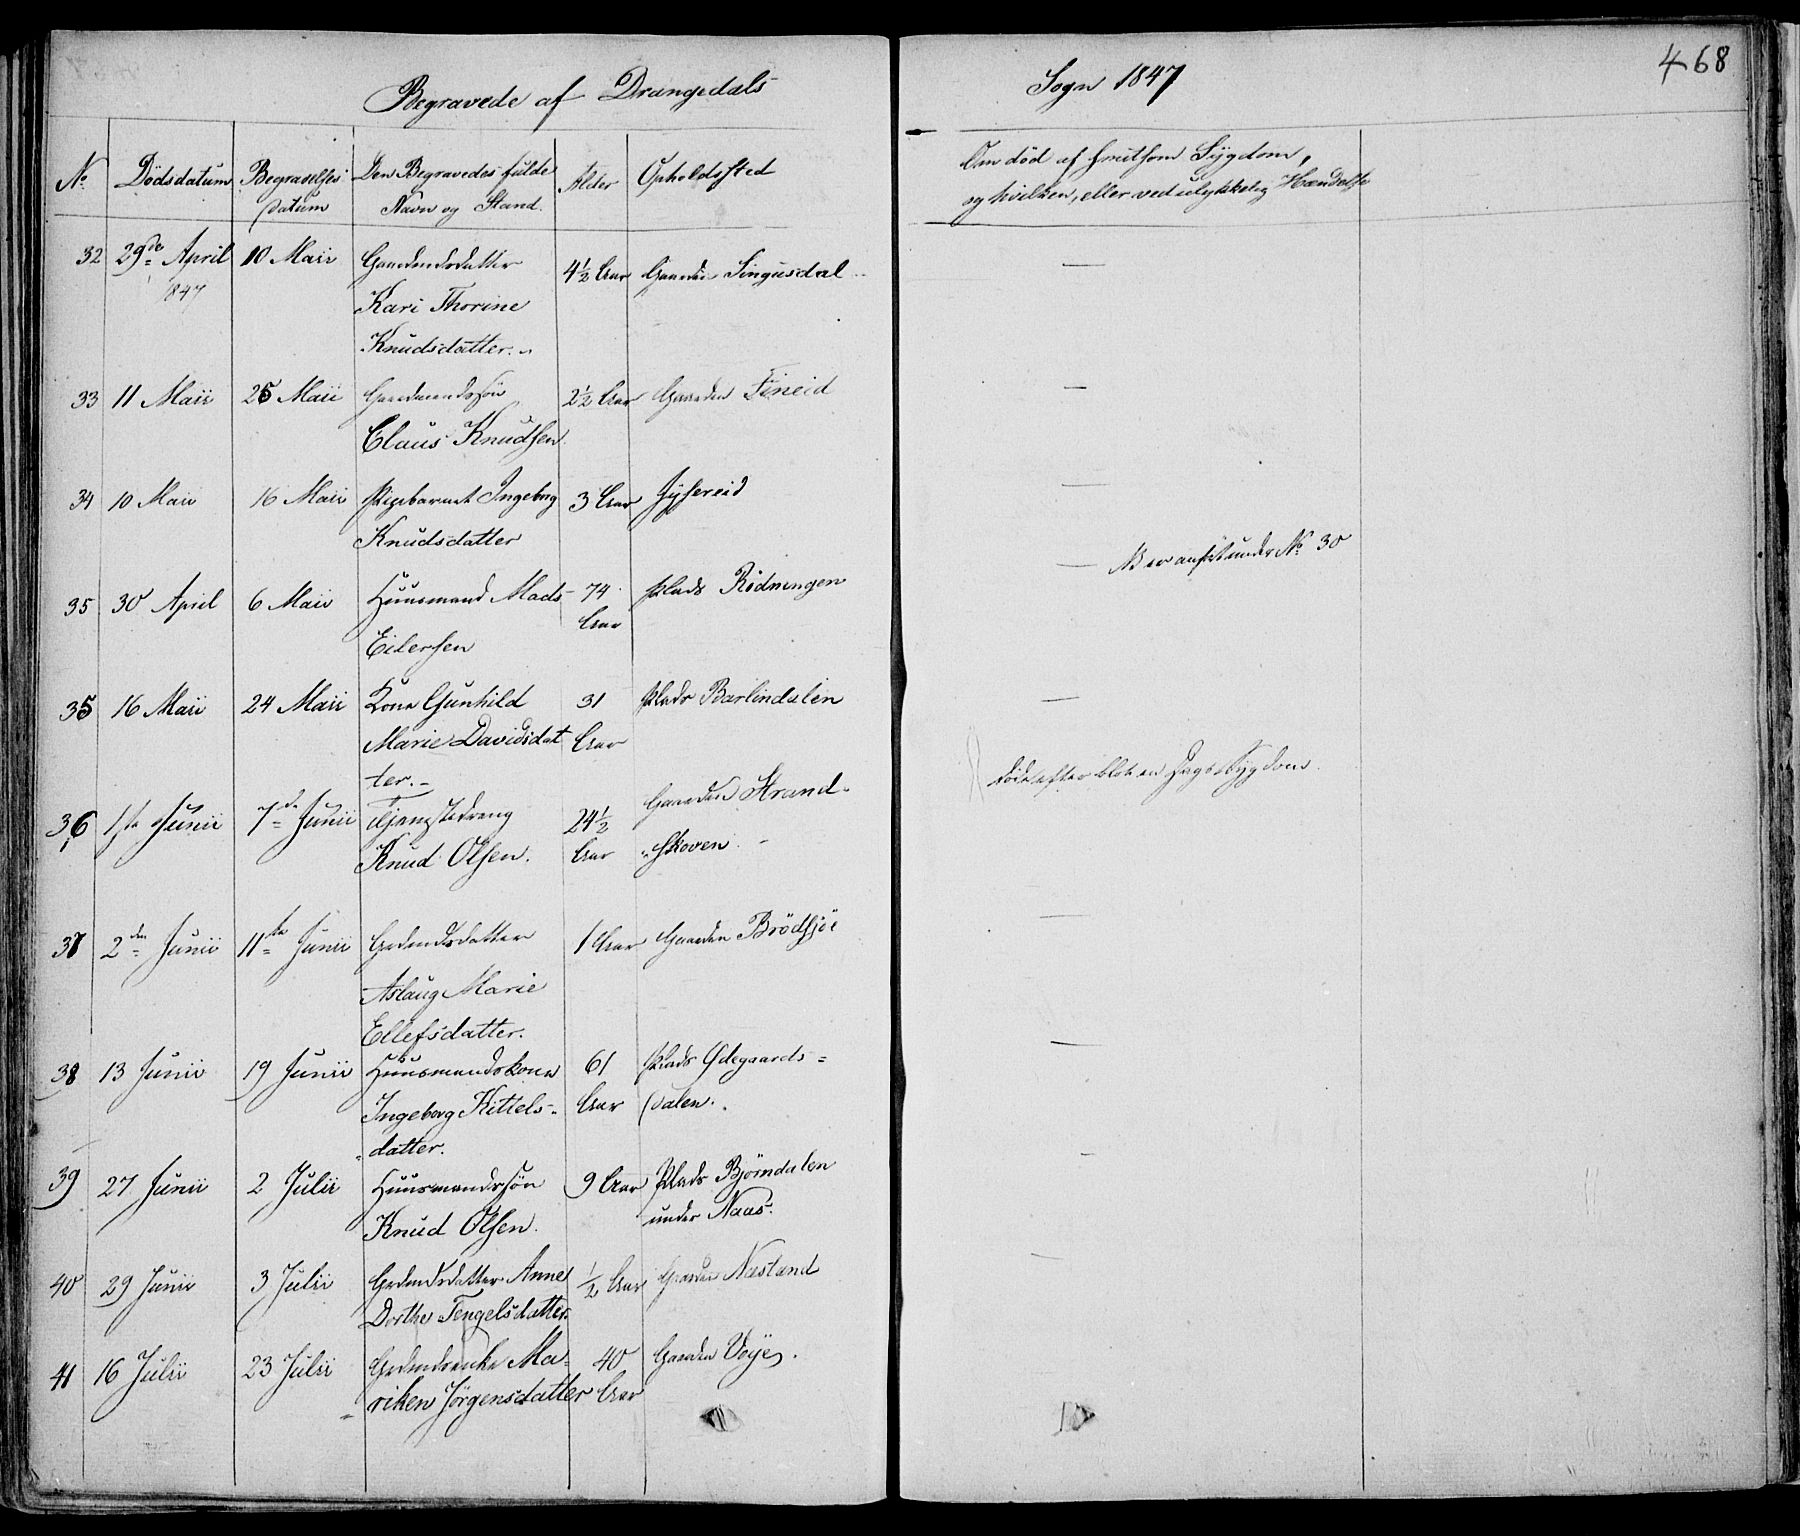 468
Begravede af Drangedals Sogn 1847
No Dödsdatum Begravelses datum Den Begravedes fulde Navn og Stand. Alder Opholdssted Om död af smitsom Sÿgdom, og hvilken, eller ved ulykkelig Hændelse
32 29de April 1847 10 Maii Gaardmdsdatter 4½ Aar Gaarden Singusdal —
Kari Thorine
Knudsdatter.
33 11 Maii 25 Maii Gaardmandssön 2½ Aar Gaarden Eineid —
Claus Knudsen
34 10 Maii 16 Maii Pigebarnet Ingeborg 3 Aar —
Knudsdatter
35 30 April 6 Maii Huusmand Mads 74 Aar Plads Rödningen — NB er anfört under No 30
Eilersen
35 16 Maii 24 Maii Kone Gunhild 31 Aar Plads Barlindalen —
Marie Davidsdat
ter.
36 1ste Junii 7de Junii Tjenestedreng 24½ Aar Gaarden Strand- döde efter blot en Dags Sygdom.
Knud Olsen. skoven
37 2den Junii 11te Junii Grdmdsdatter 1 Aar Gaarden Brödsjöe —
Aslaug Marie
Ellefsdatter.
38 13 Junii 19 Junii Huusmandskone 61 Aar Plads Ödegaards= —
Ingeborg Kittels- dalen.
datter.
39 27 Junii 2 Julii Huusmandssön 9 Aar Plads Björndalen -
Knud Olsen. under Naas.
40 29 Junii 3 Julii Grdmdsdatter Anne ½ Aar Gaarden Næsland —
Dorthe Tengelsdatter.
41 16 Julii 23 Julii Grdmdsenke Ma- 40 Aar Gaarden Voje.
riken Jörgensdatter